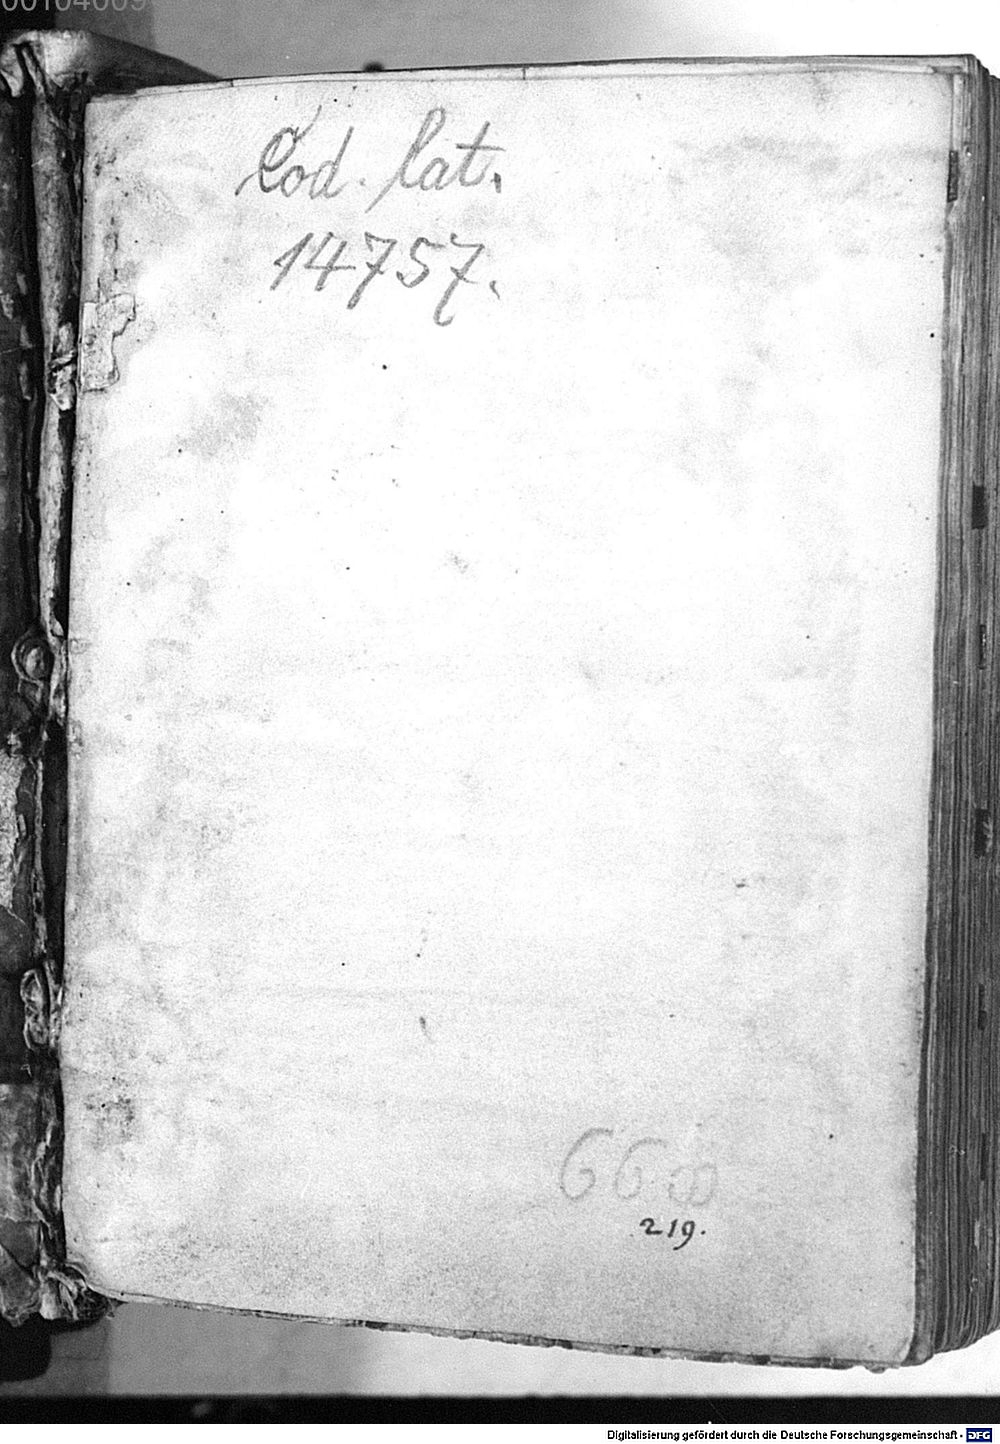 Cod. lat.
14757.
66
219.
Digitalisierung gefördert durch die Deutsche Forschungsgemeinschaft - DFG